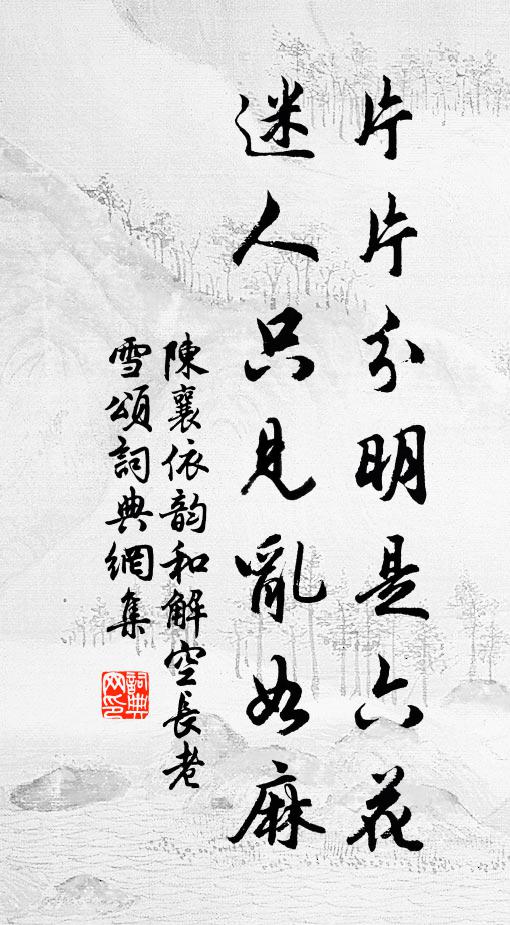 片片分明是六花
迷人只見亂如麻
陳襄依韵和解空長老
雪頌詞典網集
詞典
网印